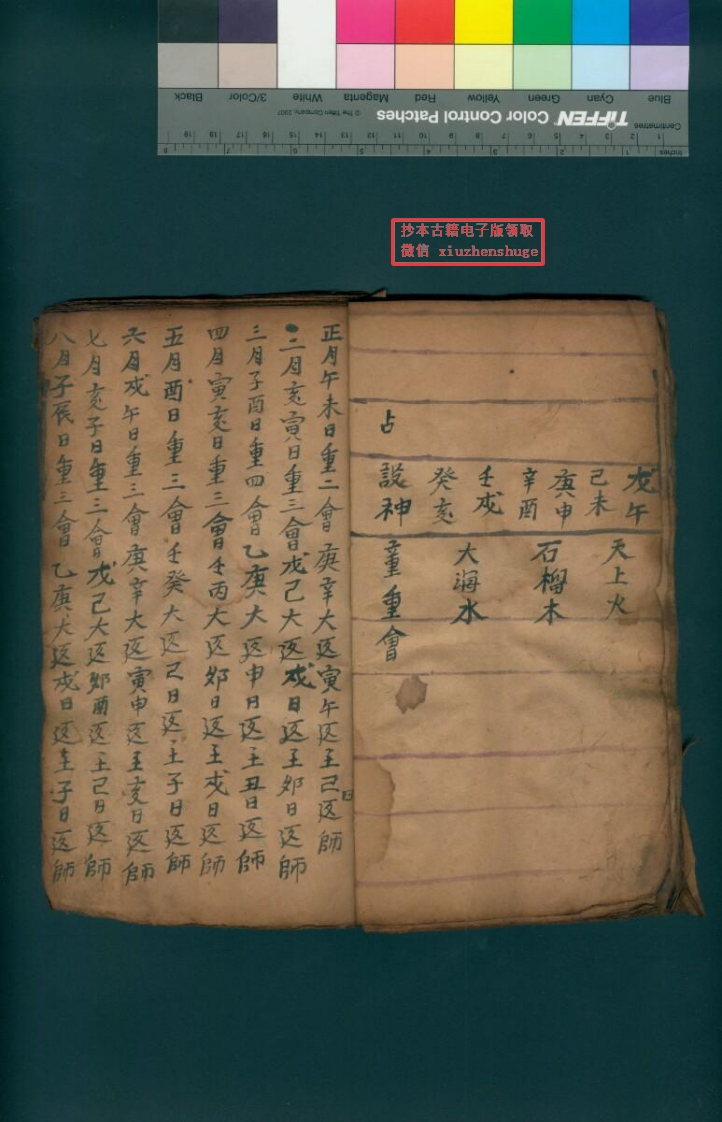 Blue Cyan Green Yellow Red Magenta White 3/Color Black
TIFFEN Color Control Patches © The Tiffen Company, 2007
Centimetres 1 2 3 4 5 6 7 8 9 10 11 12 13 14 15 16 17 18 19
Inches 1 2 3 4 5 6 7 8
抄本古籍电子版领取
微信 xiuzhenshuge
戊午
己未
天上火
庚申
辛酉
石榴木
壬戌
癸亥
大海水
占說神 童重會
正月午未日重二會庚辛大返寅午返主己日返師
二月亥寅日重三會戊己大返戌日返主卯日返師
三月子酉日重四會乙庚大返申日返主丑日返師
四月寅亥日重三會壬丙大返卯日返主戌日返師
五月酉日重三會壬癸大返己日返主子日返師
六月戌午日重三會庚辛大返寅申返主亥日返師
七月亥子日重三會戊己大返卯酉返主己日返師
八月子辰日重三會乙庚大返戌日返主子日返師